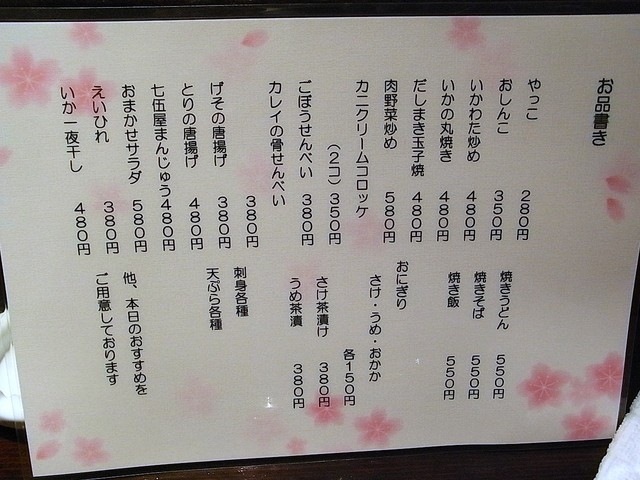 お品書き
やっこ 280円
おしんこ 350円
いかわた炒め 480円
いかの丸焼き 480円
だしまき玉子焼 480円
肉野菜炒め 580円
カニクリームコロッケ
(2コ) 350円
ごぼうせんべい 380円
カレイの骨せんべい
380円
げその唐揚げ 380円
とりの唐揚げ 480円
七伍屋まんじゅう 480円
おまかせサラダ 580円
えいひれ 380円
いか一夜干し 480円
焼きうどん 550円
焼きそば 550円
焼き飯 550円
おにぎり
さけ・うめ・おかか
各150円
さけ茶漬け 380円
うめ茶漬 380円
刺身各種
天ぷら各種
他、本日のおすすめを
ご用意しております